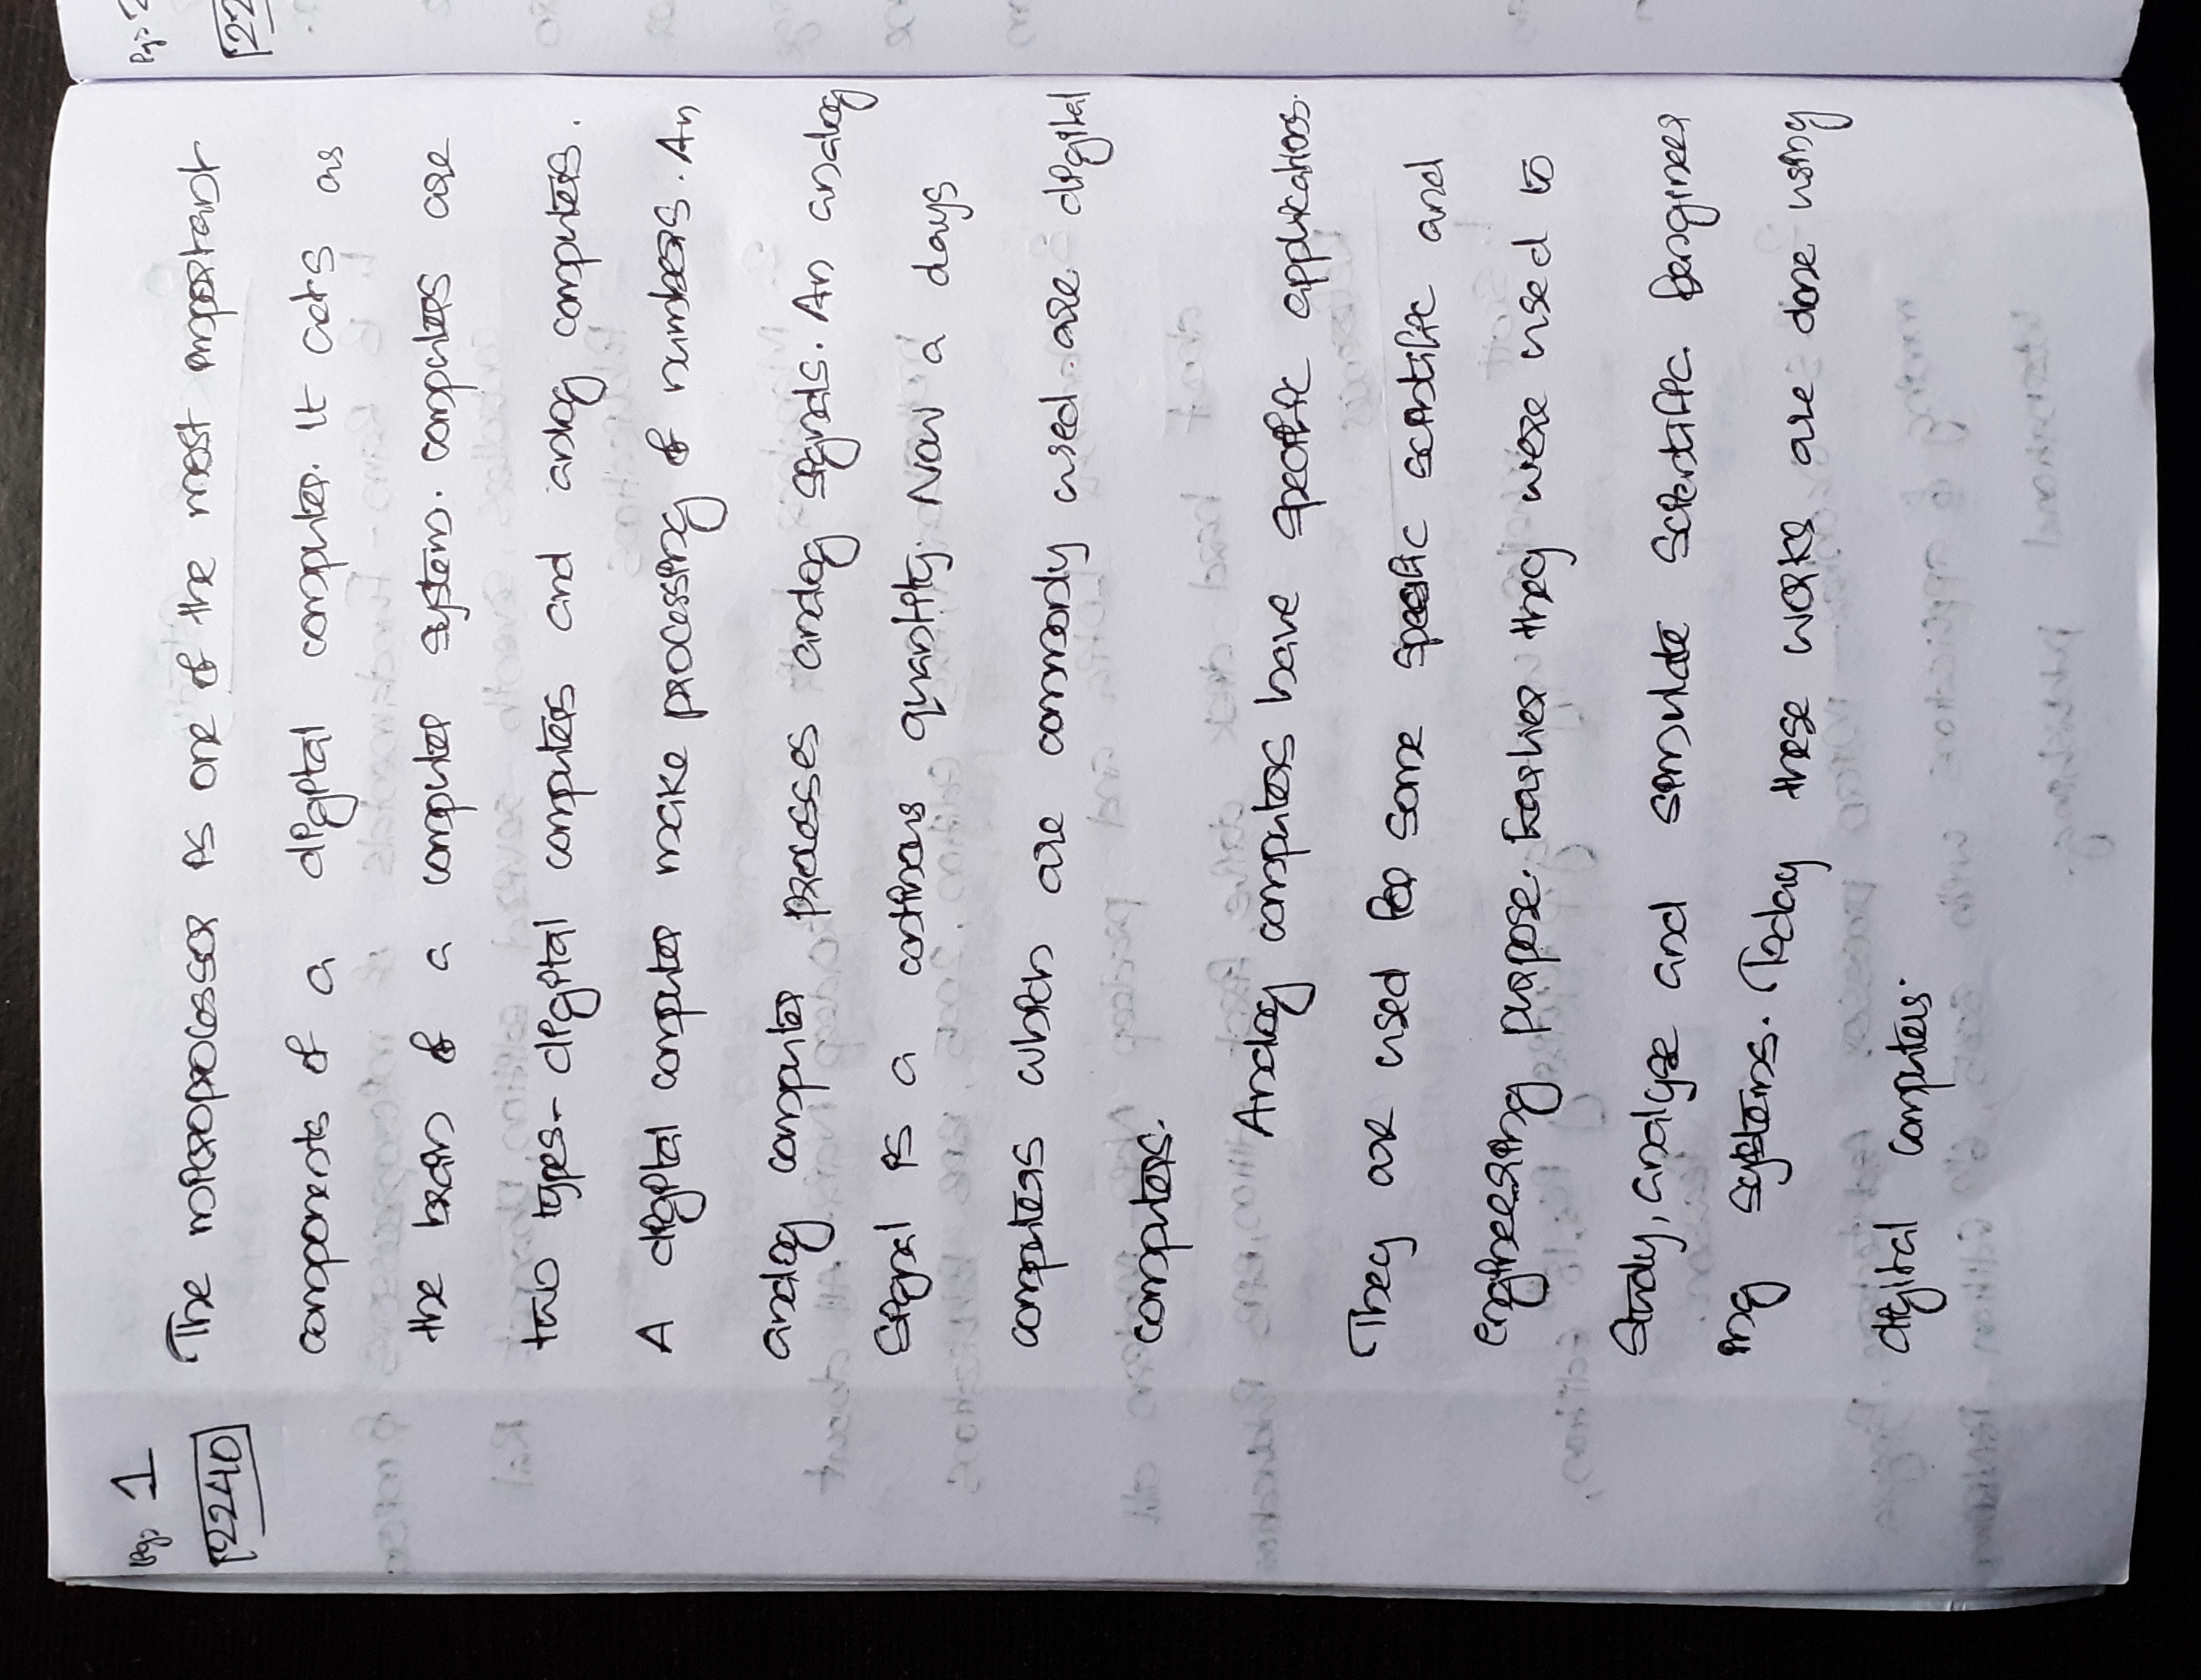 Pg: 1
2240
The microprocessor is one of the most important
components of a digital computer. It acts as
the brain of a computer system. computers are
two types- digital computers and anlog computers.
A digital computer make processing of numbers. An
analog computer processes analog signals. An analog
signal is a continous quantity. Now a days
computers which are commonly used are digital
computers.
Analog computers have specific applications.
They are used for some specific scintific and
engineering purpose. Earlier they were used to
study, analyse and simulate scientific & engineer
ing systems. Today these works are done using
digital computers.
Pg: 2
22